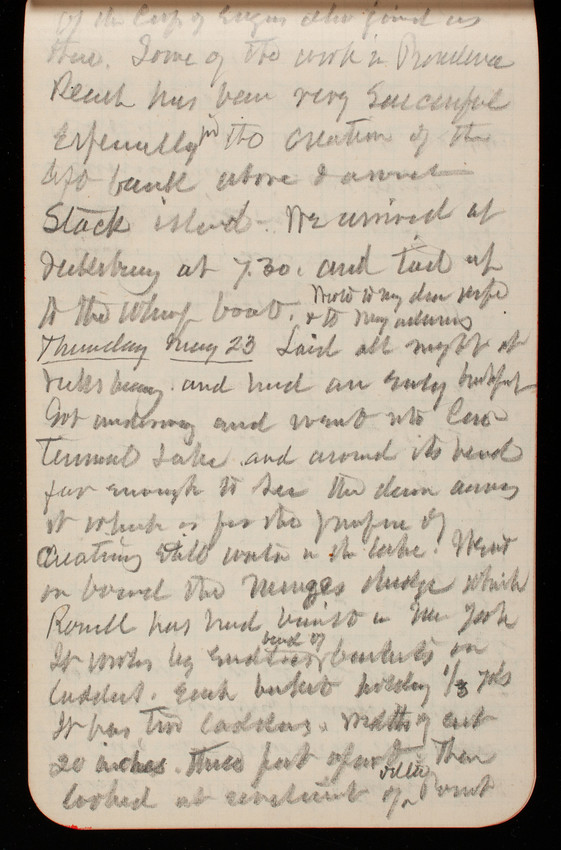 of the Corps of Engrs who joined us
there. Some of the work in Providence
Reach has been very successful
Especially in the creation of the
left bank above & around
Stack island. We arrived at
Vicksburg at 7.30. and tied up
to the wharf boat. Wrote to my dear wife
& to May
Thursday May 23 Laid all night at
Vicksburg. and had an early breakfast
Got underway and went into
Lake and around its bend
far enough to see the dam across
it which is for the purpose of
creating still water in the lake. Went
on board the Menges dredge which
has had built in New York
It works by endless band of buckets on
ladders. Each bucket holding 1/3 yds
It has two ladders. Width of cut
20 inches. three feet apart. Then
looked at revetment of Delta Point